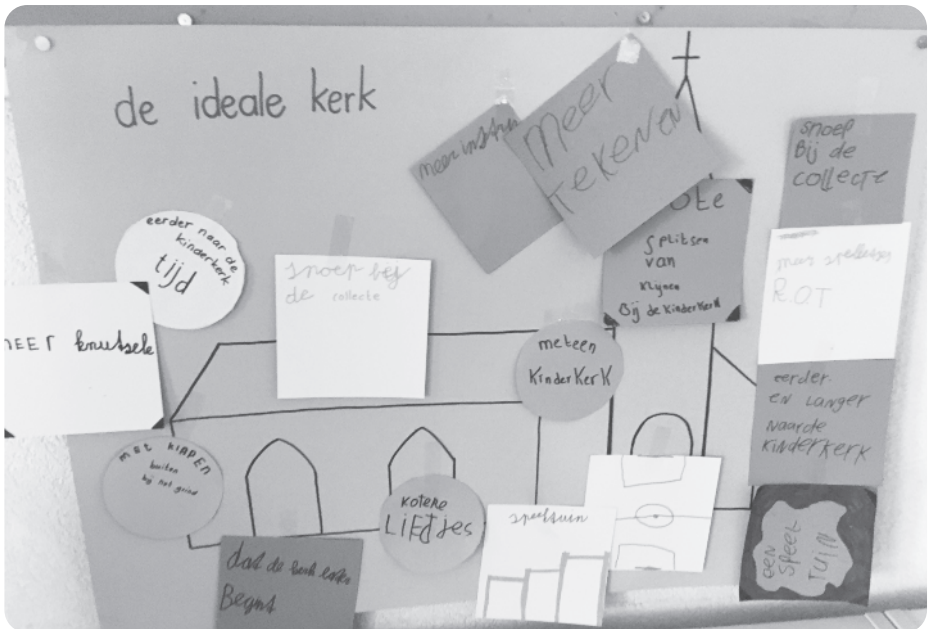 de ideale kerk
meer
meer
tekenen
snoep
Bij de
collecte
eerder naar de
kinderkerk
tijd
snoep bij
de collecte
ote
splitsen
van
klijnen
Bij de kinderkerk
meer
R.O.T
knutsele
meteen
kinderkerk
eerder
en langer
naarde
kinderkerk
met kippen
buiten
bij het
kotere
Liedjes
speeltuin
een
speel
tuin
dat de kerk
Begint